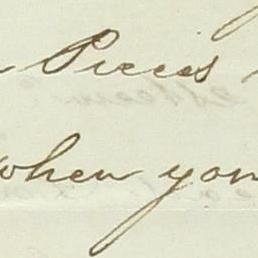 Pieces
when you